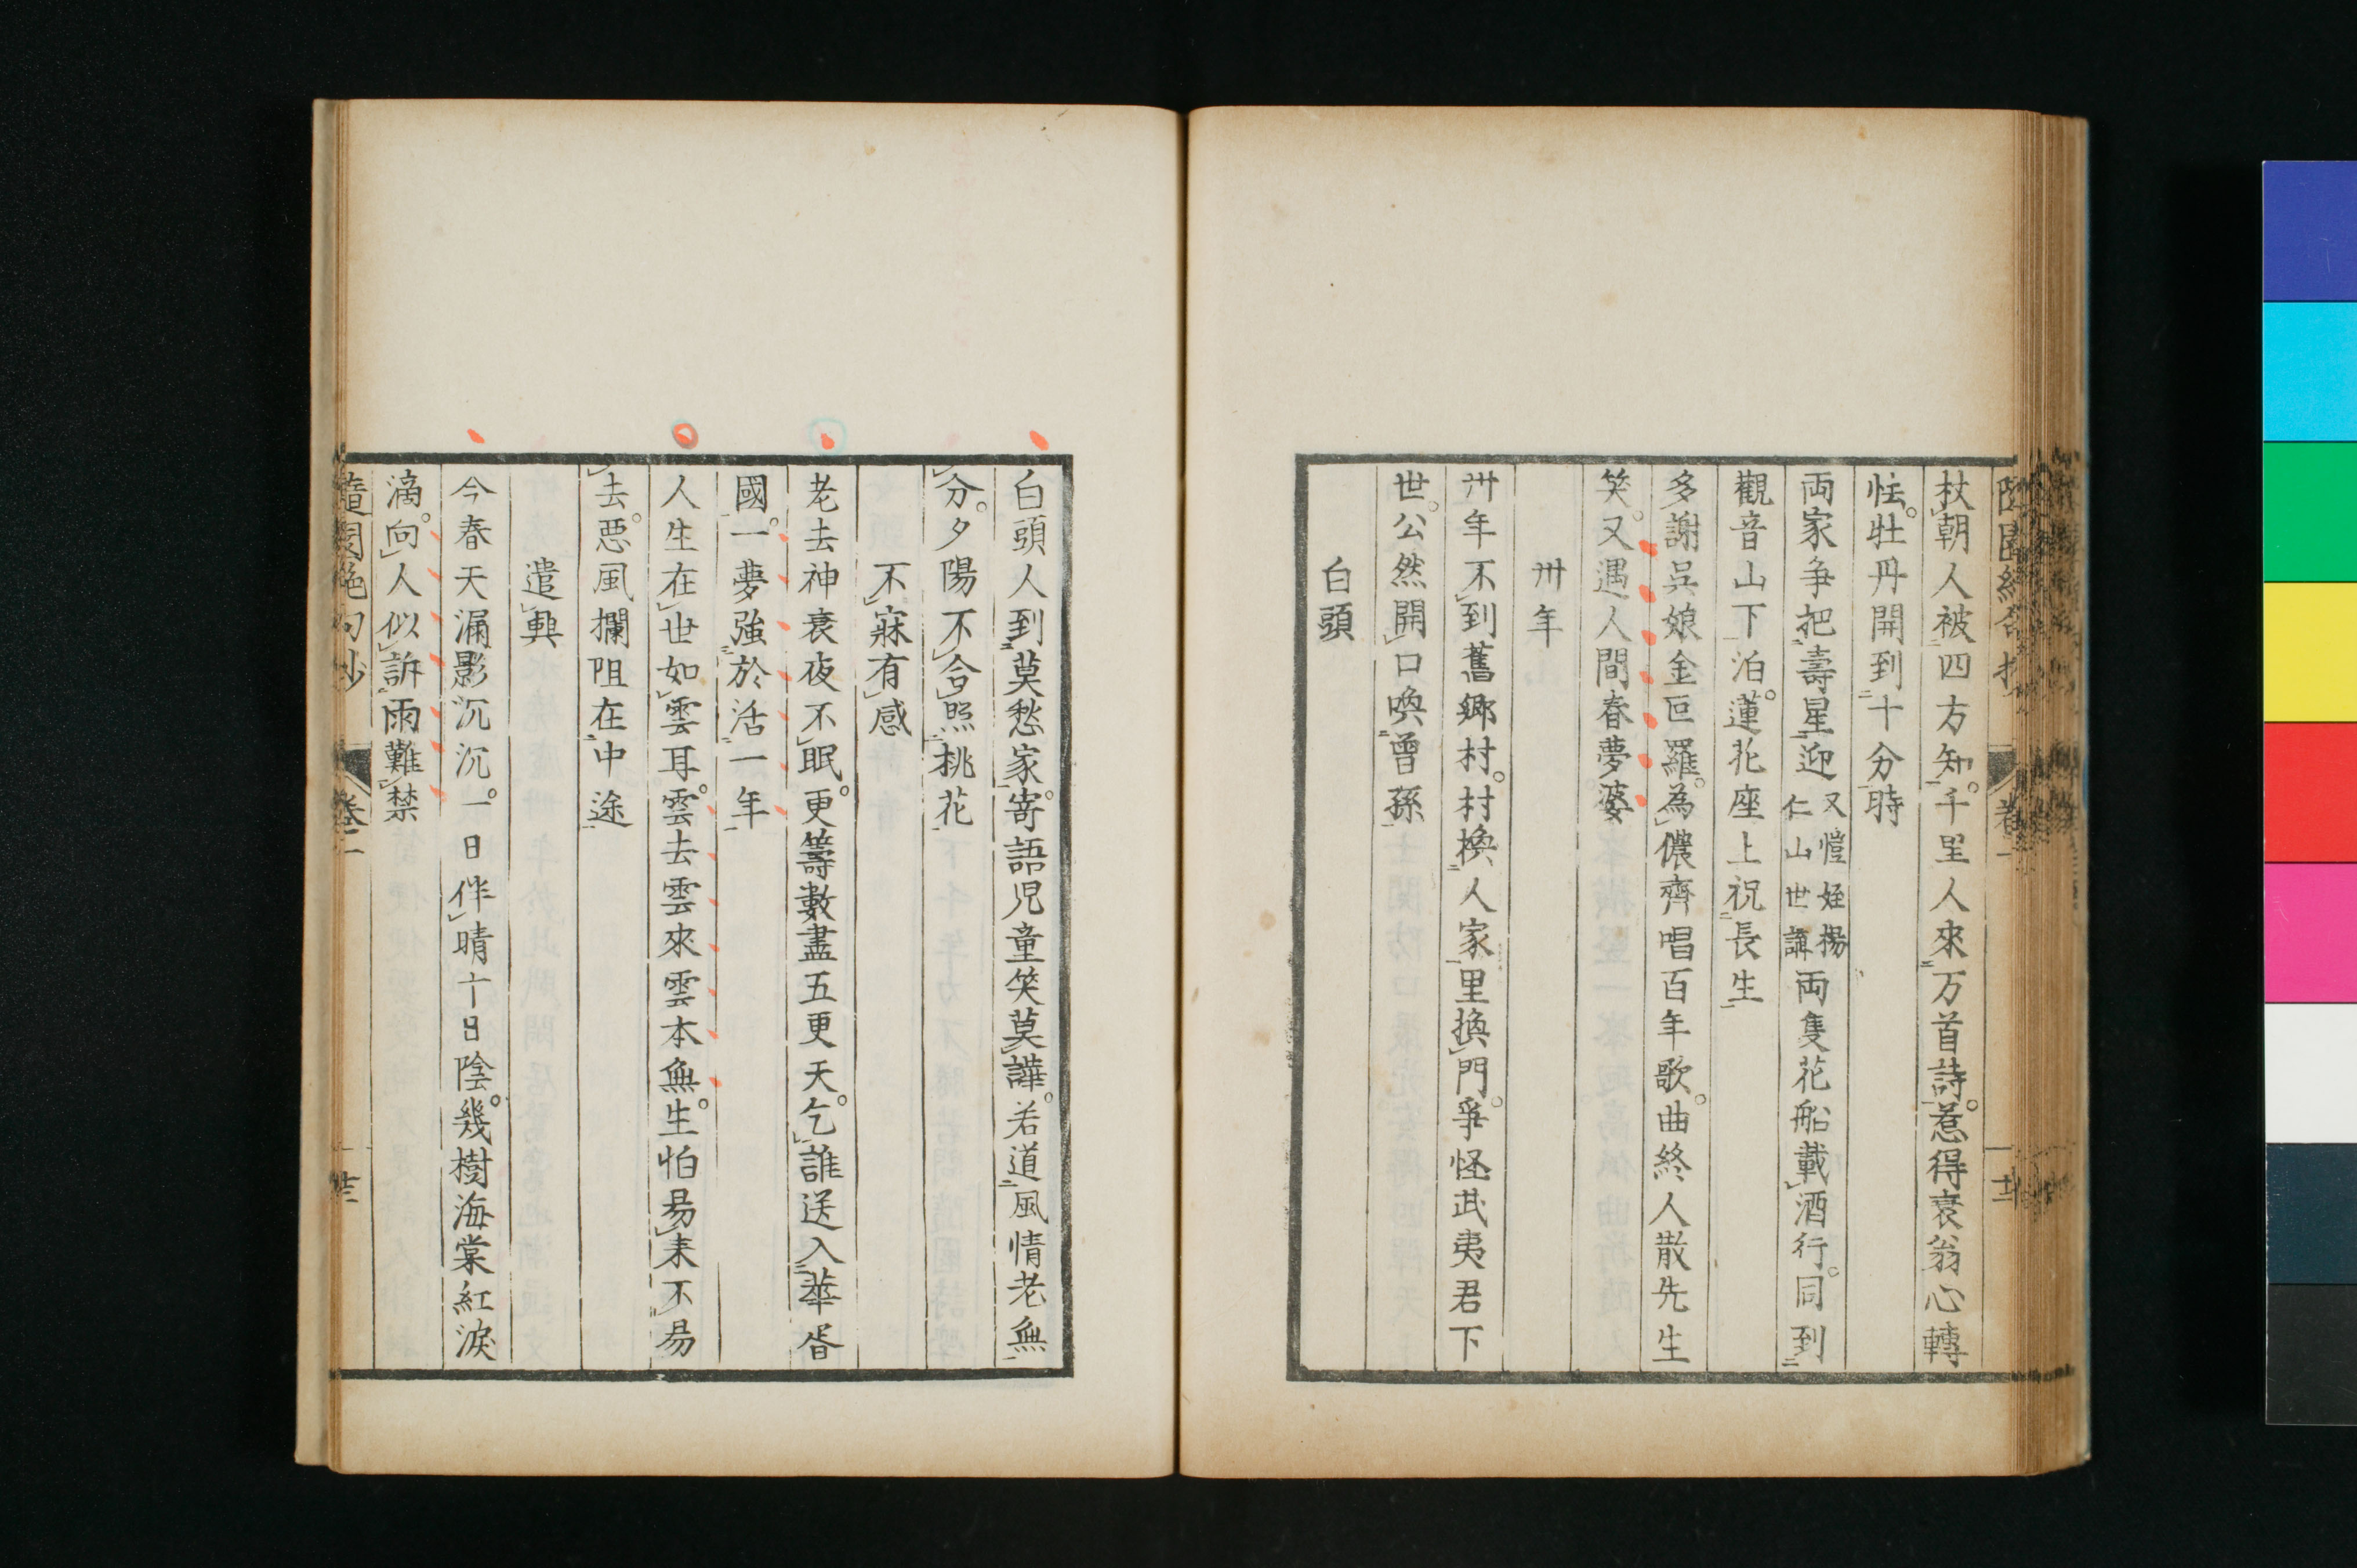 杖朝人被四方知。千里人來万首詩。惹得衰翁心轉
怯。牡丹開到十分時
両家争把壽星迎又愷姪揚仁山世講両隻花船載酒行。同到
觀音山下泊。蓮花座上祝長生
多謝呉娘金叵羅。為儂齊唱百年歌。曲終人散先生
笑。又遇人間春夢婆
卅年
卅年不到舊鄉村。村換人家里換門。爭怪武夷君下
世。公然開口喚曾孫
白頭
白頭人到莫愁家。寄語児童笑莫譁。若道風情老無
分。夕陽不合照桃花
不寐有感
老去神衰夜不眠。更籌數盡五更天。乞誰送入華胥
國。一夢強於活一年
人生在世如雲耳。雲去雲來雲本無。生怕易来不易
去。悪風攔阻在中途
遣興
今春天漏影沉沉。一日伴晴十日陰。幾樹海棠紅淚
滴。向人似訴雨難禁
隨園絶句抄
卷二